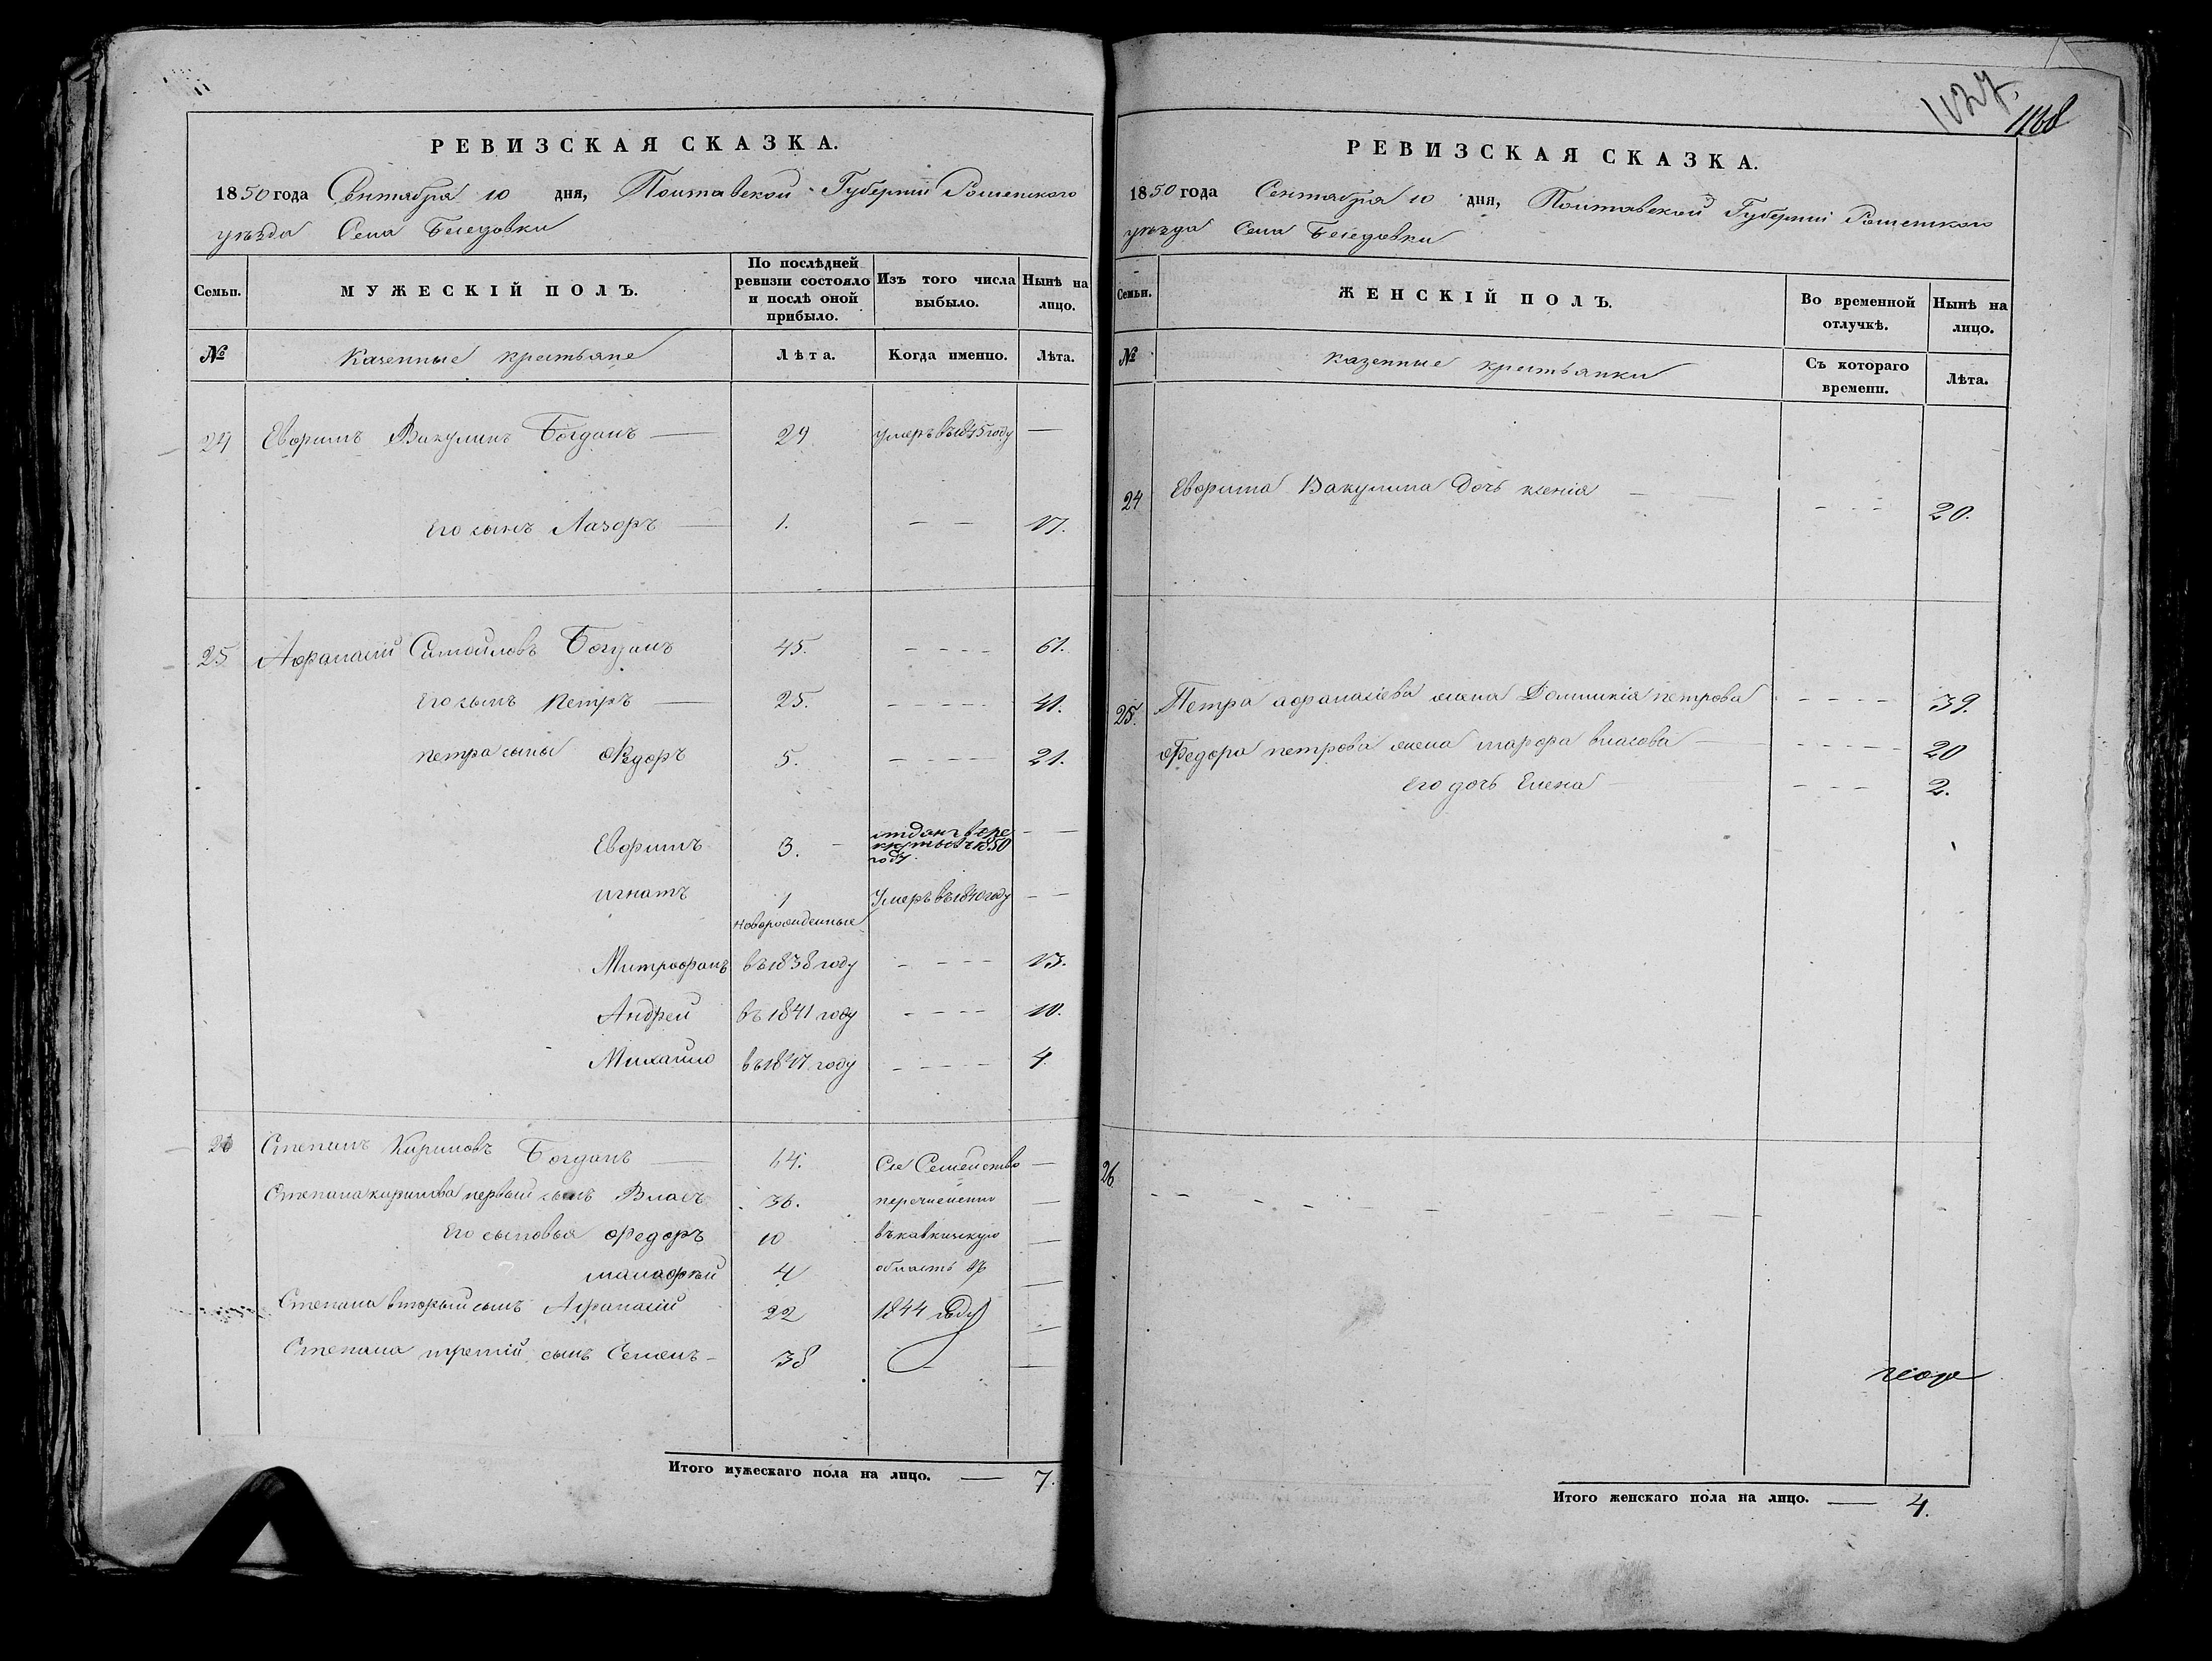 РЕВИЗСКАЯ СКАЗКА.
1850 года Сентября 10 дня, Полтавской Губернии Роменского
уѣзда Села Беседовки
Семьи.
МУЖЕСКІЙ ПОЛЪ.
По послѣдней ревизіи состояло и послѣ оной прибыло.
Изъ того числа выбыло.
Нынѣ на лицо.
№
Казенные крестьяне
Лѣта.
Когда именно.
Лѣта.
24 Евфимъ Вакулинъ Богданъ — 29 умеръ въ 1845 году —
Его сынъ Лазоръ — 1. — — 17.
25 Афанасій Самойловъ Богданъ 45. - - - - 61.
Его сынъ Петръ — 25. - - - - 41.
Петра сыны Ѳедоръ 5. - - - - 21.
Евфимъ 3. - отданъ в ре
круты въ 1850
году. — —
игнатъ 1 Умеръ въ 1840 году — —
новорожденные
Митрофанъ въ 1838 году - - - - 13.
Андрей въ 1841 году - - - - 10.
Михайло въ 1847 году - - - - 4
26 Степанъ Кириловъ Богданъ — 64. Сіе Семейство —
Степана кирилова первый сынъ Власъ 36. перечислено —
Его сыновья Федоръ 10 въ кавказскую —
малафѣй 4 область въ —
Степана вторый сынъ Афанасій 22 1844 году —
Степана третій сынъ Семенъ - 38 —
Итого мужескаго пола на лицо. — 7.
1127.
1168
РЕВИЗСКАЯ СКАЗКА.
1850 года Сентября 10 дня, Полтавской Губерніи Роменского
уѣзда Села Беседовки
Семьи.
ЖЕНСКІЙ ПОЛЪ.
Во временной отлучкѣ.
Нынѣ на лицо.
№
казенные крестьянки
Съ котораго времени.
Лѣта.
24 Евфима Вакулина дочь ксенія — — - - - 20.
25. Петра афанасіева жена Домникія петрова - - - - 39.
Федора петрова жена марфа власова — - - - - 20
Его дочь Елена — - - - 2.
26
Итого женскаго пола на лицо. — 4.